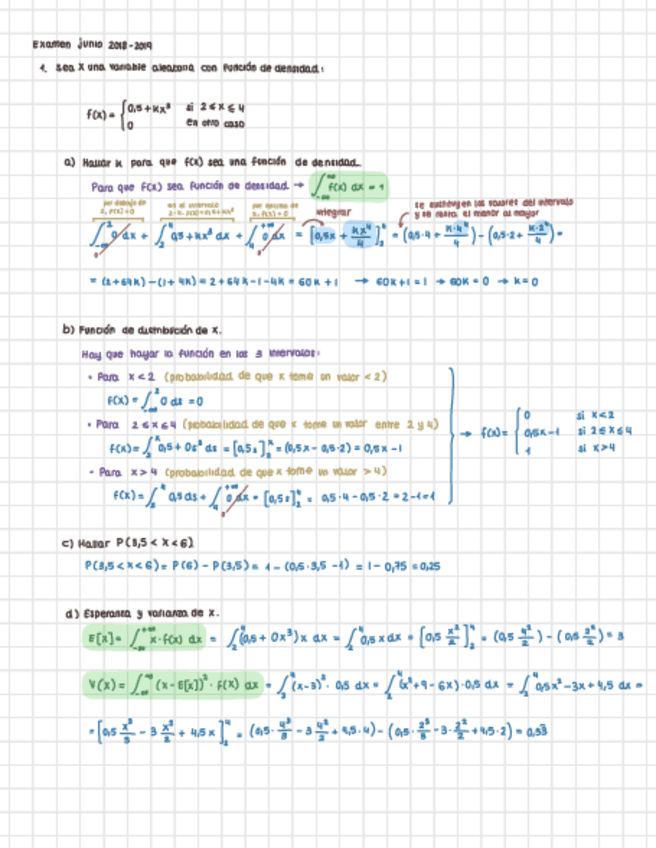 Examen junio 2018-2019
1. Sea X una variable aleatoria con función de densidad:
f(x) = { 0,5+Kx³ si 2 ≤ x ≤ 4
0 en otro caso
a) Hallar K para que f(x) sea una función de densidad.
Para que f(x) sea función de densidad → ∫_{-∞}^{+∞} f(x) dx = 1
por debajo de 2, f(x)=0 en el intervalo por encima de 4, f(x)=0 integrar se sustituyen los valores del intervalo y se resta el menor al mayor
∫_{-∞}^{2} 0 dx + ∫_{2}^{4} 0,5+Kx³ dx + ∫_{4}^{+∞} 0 dx = [0,5x + Kx⁴/4]_{2}^{4} = (0,5·4 + K·4⁴/4) - (0,5·2 + K·2⁴/4) =
= (2+64K) - (1+4K) = 2+64K-1-4K = 60K+1 → 60K+1 = 1 → 60K = 0 → K = 0
b) Función de distribución de X.
Hay que hayar la función en los 3 intervalos:
• Para x < 2 (probabilidad de que x tome un valor < 2)
f(x) = ∫_{-∞}^{2} 0 ds = 0
• Para 2 ≤ x ≤ 4 (probabilidad de que x tome un valor entre 2 y 4)
f(x) = ∫_{2}^{x} 0,5 + 0s³ ds = [0,5s]_{2}^{x} = (0,5x - 0,5·2) = 0,5x - 1
• Para x > 4 (probabilidad de que x tome un valor > 4)
f(x) = ∫_{2}^{4} 0,5 ds + ∫_{4}^{+∞} 0 dx = [0,5s]_{2}^{4} = 0,5·4 - 0,5·2 = 2-1 = 1
→ f(x) = { 0 si x < 2
0,5x-1 si 2 ≤ x ≤ 4
1 si x > 4
c) Hallar P(3,5 < X < 6)
P(3,5 < X < 6) = P(6) - P(3,5) = 1 - (0,5·3,5 - 1) = 1 - 0,75 = 0,25
d) Esperanza y varianza de X.
E[x] = ∫_{-∞}^{+∞} x·f(x) dx = ∫_{2}^{4} (0,5 + 0x³)x dx = ∫_{2}^{4} 0,5x dx = [0,5 x²/2]_{2}^{4} = (0,5 4²/2) - (0,5 2²/2) = 3
V(x) = ∫_{-∞}^{+∞} (x-E[x])²·f(x) dx = ∫_{2}^{4} (x-3)²·0,5 dx = ∫_{2}^{4} (x²+9-6x)·0,5 dx = ∫_{2}^{4} 0,5x²-3x+4,5 dx =
= [0,5 x³/3 - 3 x²/2 + 4,5x]_{2}^{4} = (0,5·4³/3 - 3 4²/2 + 4,5·4) - (0,5·2³/3 - 3·2²/2 + 4,5·2) = 0,33